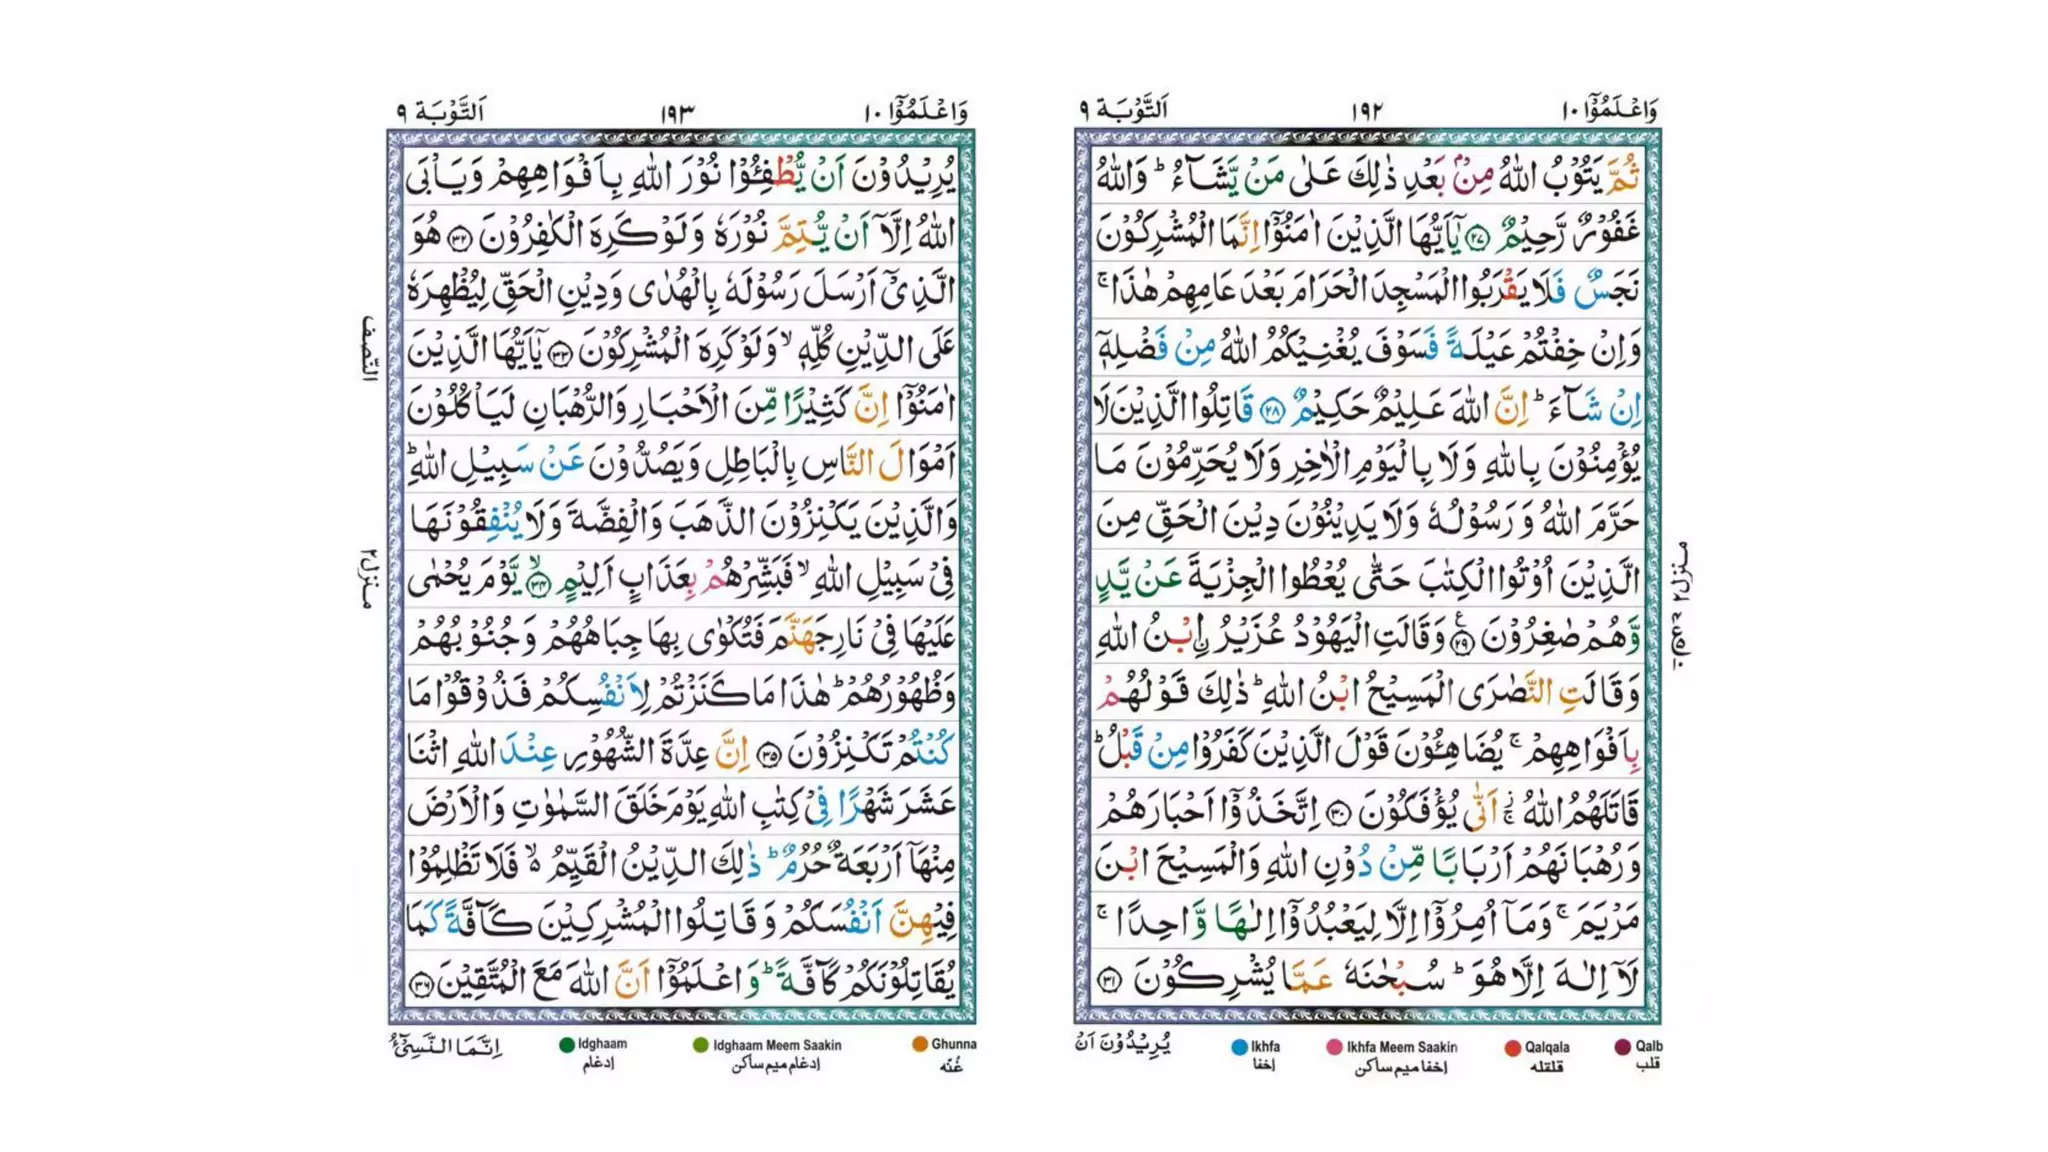 وَاعْلَمُوْۤا ۱۰
۱۹۲
اَلتَّوْبَة ۹
ثُمَّ يَتُوْبُ اللّٰهُ مِنْۢ بَعْدِ ذٰلِكَ عَلٰى مَنْ يَّشَآءُ ؕ وَاللّٰهُ
غَفُوْرٌ رَّحِيْمٌ ۝۲۷ يٰۤاَيُّهَا الَّذِيْنَ اٰمَنُوْۤا اِنَّمَا الْمُشْرِكُوْنَ
نَجَسٌ فَلَا يَقْرَبُوا الْمَسْجِدَ الْحَرَامَ بَعْدَ عَامِهِمْ هٰذَا ۚ
وَاِنْ خِفْتُمْ عَيْلَةً فَسَوْفَ يُغْنِيْكُمُ اللّٰهُ مِنْ فَضْلِهٖۤ
اِنْ شَآءَ ؕ اِنَّ اللّٰهَ عَلِيْمٌ حَكِيْمٌ ۝۲۸ قَاتِلُوا الَّذِيْنَ لَا
يُؤْمِنُوْنَ بِاللّٰهِ وَلَا بِالْيَوْمِ الْاٰخِرِ وَلَا يُحَرِّمُوْنَ مَا
حَرَّمَ اللّٰهُ وَرَسُوْلُهٗ وَلَا يَدِيْنُوْنَ دِيْنَ الْحَقِّ مِنَ
الَّذِيْنَ اُوْتُوا الْكِتٰبَ حَتّٰى يُعْطُوا الْجِزْيَةَ عَنْ يَّدٍ
وَّهُمْ صٰغِرُوْنَ ۝۲۹ؑ وَقَالَتِ الْيَهُوْدُ عُزَيْرُ ۨابْنُ اللّٰهِ
وَقَالَتِ النَّصٰرَى الْمَسِيْحُ ابْنُ اللّٰهِ ؕ ذٰلِكَ قَوْلُهُمْ
بِاَفْوَاهِهِمْ ۚ يُضَاهِـُٔوْنَ قَوْلَ الَّذِيْنَ كَفَرُوْا مِنْ قَبْلُ ؕ
قَاتَلَهُمُ اللّٰهُ ۚؗ اَنّٰى يُؤْفَكُوْنَ ۝۳۰ اِتَّخَذُوْۤا اَحْبَارَهُمْ
وَرُهْبَانَهُمْ اَرْبَابًا مِّنْ دُوْنِ اللّٰهِ وَالْمَسِيْحَ ابْنَ
مَرْيَمَ ۚ وَمَاۤ اُمِرُوْۤا اِلَّا لِيَعْبُدُوْۤا اِلٰهًا وَّاحِدًا ۚ
لَاۤ اِلٰهَ اِلَّا هُوَ ؕ سُبْحٰنَهٗ عَمَّا يُشْرِكُوْنَ ۝۳۱
منزل۲
يُرِيْدُوْنَ اَنْ
Ikhfa
إخفا
Ikhfa Meem Saakin
إخفا میم ساکن
Qalqala
قلقله
Qalb
قلب
وَاعْلَمُوْۤا ۱۰
۱۹۳
اَلتَّوْبَة ۹
يُرِيْدُوْنَ اَنْ يُّطْفِـُٔوْا نُوْرَ اللّٰهِ بِاَفْوَاهِهِمْ وَيَاْبَى
اللّٰهُ اِلَّاۤ اَنْ يُّتِمَّ نُوْرَهٗ وَلَوْ كَرِهَ الْكٰفِرُوْنَ ۝۳۲ هُوَ
الَّذِيْۤ اَرْسَلَ رَسُوْلَهٗ بِالْهُدٰى وَدِيْنِ الْحَقِّ لِيُظْهِرَهٗ
عَلَى الدِّيْنِ كُلِّهٖ ۙ وَلَوْ كَرِهَ الْمُشْرِكُوْنَ ۝۳۳ يٰۤاَيُّهَا الَّذِيْنَ
اٰمَنُوْۤا اِنَّ كَثِيْرًا مِّنَ الْاَحْبَارِ وَالرُّهْبَانِ لَيَاْكُلُوْنَ
اَمْوَالَ النَّاسِ بِالْبَاطِلِ وَيَصُدُّوْنَ عَنْ سَبِيْلِ اللّٰهِ ؕ
وَالَّذِيْنَ يَكْنِزُوْنَ الذَّهَبَ وَالْفِضَّةَ وَلَا يُنْفِقُوْنَهَا
فِيْ سَبِيْلِ اللّٰهِ ۙ فَبَشِّرْهُمْ بِعَذَابٍ اَلِيْمٍ ۝۳۴ۙ يَّوْمَ يُحْمٰى
عَلَيْهَا فِيْ نَارِ جَهَنَّمَ فَتُكْوٰى بِهَا جِبَاهُهُمْ وَجُنُوْبُهُمْ
وَظُهُوْرُهُمْ ؕ هٰذَا مَا كَنَزْتُمْ لِاَنْفُسِكُمْ فَذُوْقُوْا مَا
كُنْتُمْ تَكْنِزُوْنَ ۝۳۵ اِنَّ عِدَّةَ الشُّهُوْرِ عِنْدَ اللّٰهِ اثْنَا
عَشَرَ شَهْرًا فِيْ كِتٰبِ اللّٰهِ يَوْمَ خَلَقَ السَّمٰوٰتِ وَالْاَرْضَ
مِنْهَاۤ اَرْبَعَةٌ حُرُمٌ ؕ ذٰلِكَ الدِّيْنُ الْقَيِّمُ ۙ۬ فَلَا تَظْلِمُوْا
فِيْهِنَّ اَنْفُسَكُمْ وَقَاتِلُوا الْمُشْرِكِيْنَ كَآفَّةً كَمَا
يُقَاتِلُوْنَكُمْ كَآفَّةً ؕ وَاعْلَمُوْۤا اَنَّ اللّٰهَ مَعَ الْمُتَّقِيْنَ ۝۳۶
النّصف
منزل۲
اِنَّمَا النَّسِيْٓءُ
Idghaam
إدغام
Idghaam Meem Saakin
إدغام میم ساکن
Ghunna
غُنّه